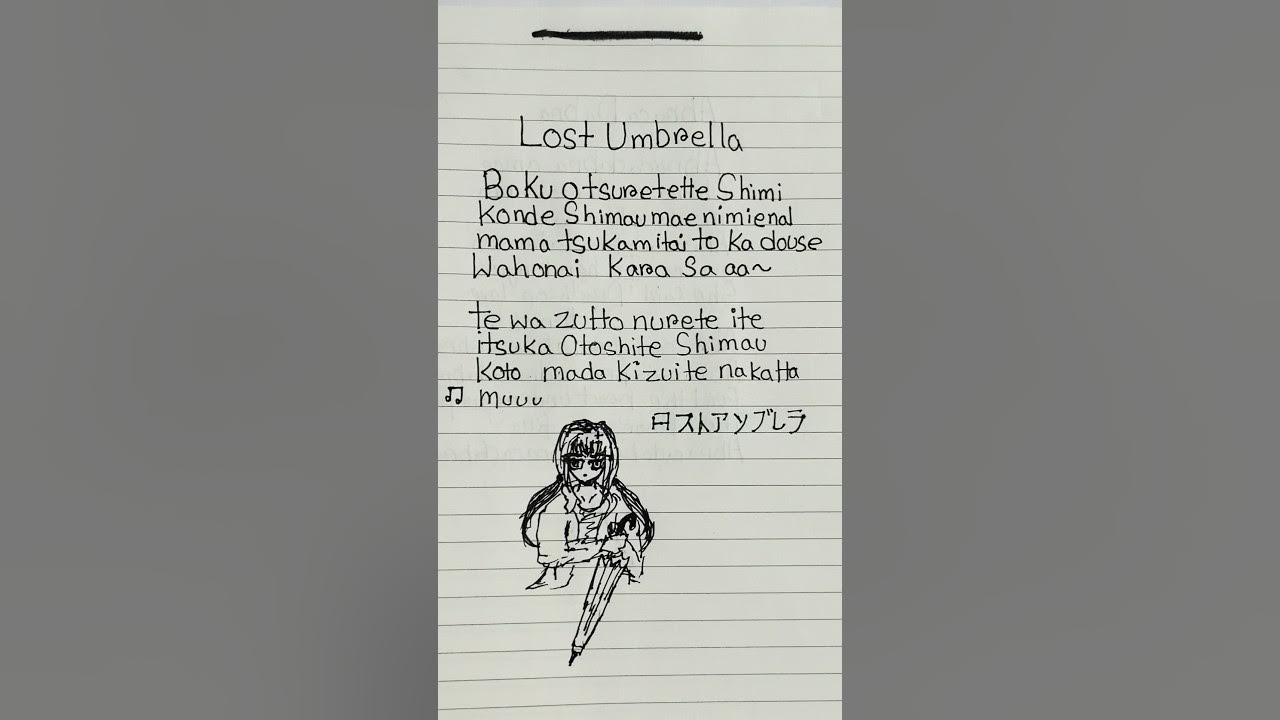 Lost Umbrella
Boku otsuretette Shimi
konde Shimau mae nimienal
mama tsukamitai to ka douse
Wahonai Kara Sa aa~
te wa zutto nurete ite
itsuka Otoshite Shimau
koto mada kizuite nakatta
♫ muuu
日ストアンブレラ